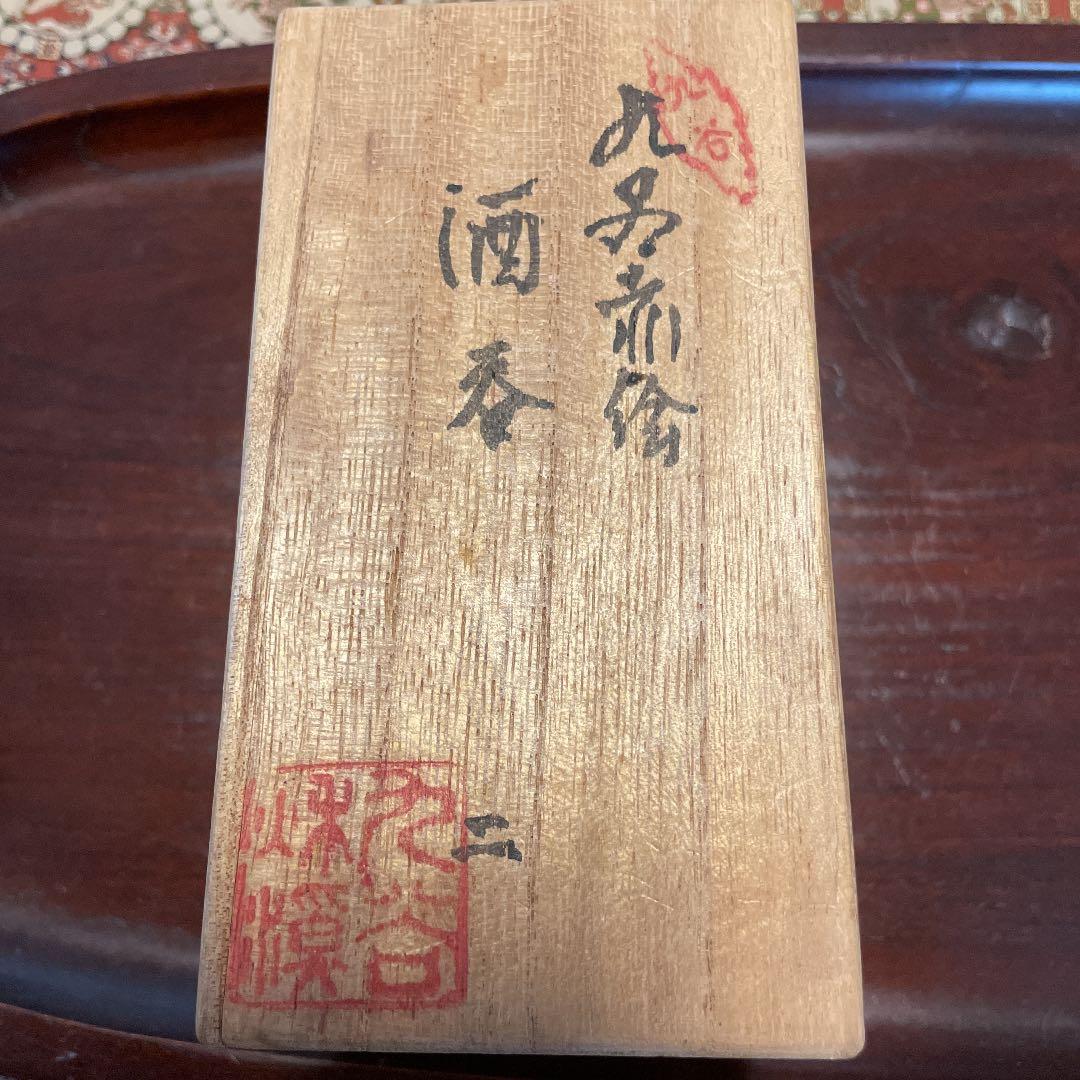 九谷
九谷赤絵
酒呑
二
九谷